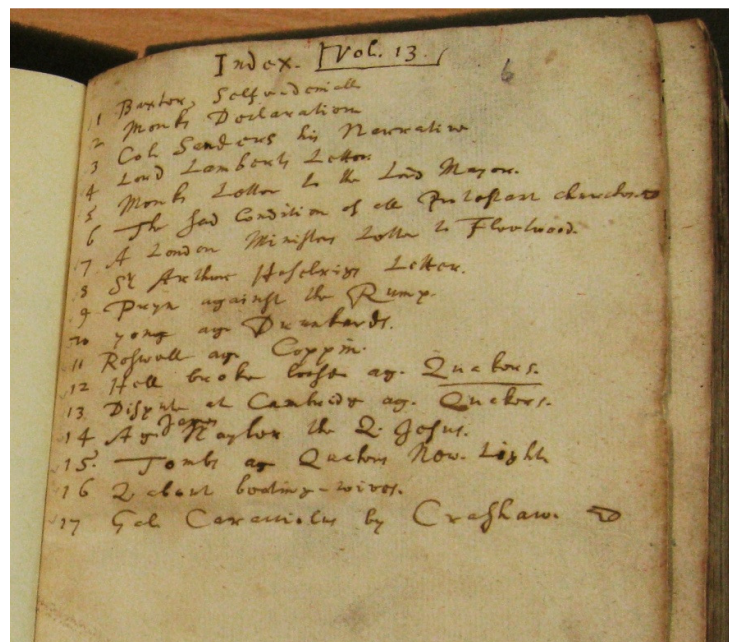 Index. Vol. 13.
6
1 Baxter, Selfe deniall
2 Monks Declaration
3 Col. Sanders his Narrative
4 Lord Lamberts Letter
5 Monks Letter to the Lord Mayor.
6 The sad Condition of all Protestant churches.
7 A London Ministers Letter to Fleetwood.
8 Sr Arthur Haselrigs Letter.
9 Pryn against the Rump.
10 yong ag Drunkards.
11 Roswell ag. Coppin.
12 Hell broke loose ag. Quakers.
13 Dispute at Cambridg ag. Quakers.
14 Ag James Naylor the Q. Jesus.
15. Tombs ag Quakers New-Light
16 Q about beating-wives.
17 Gal. Caracciolus by Crashaw.